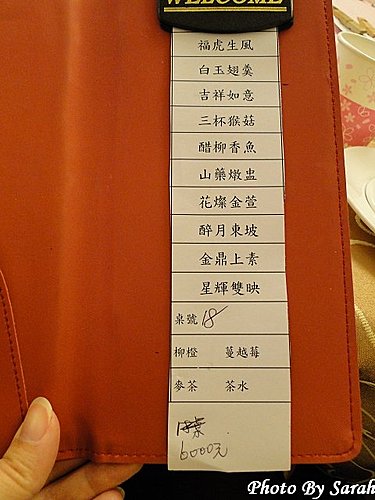 WELCOME
福虎生風
白玉翅羹
吉祥如意
三杯猴菇
醋柳香魚
山藥燉盅
花燦金萱
醉月東坡
金鼎上素
星輝雙映
桌號 18
柳橙 蔓越莓
麥茶 茶水
6000元
Photo By Sarah